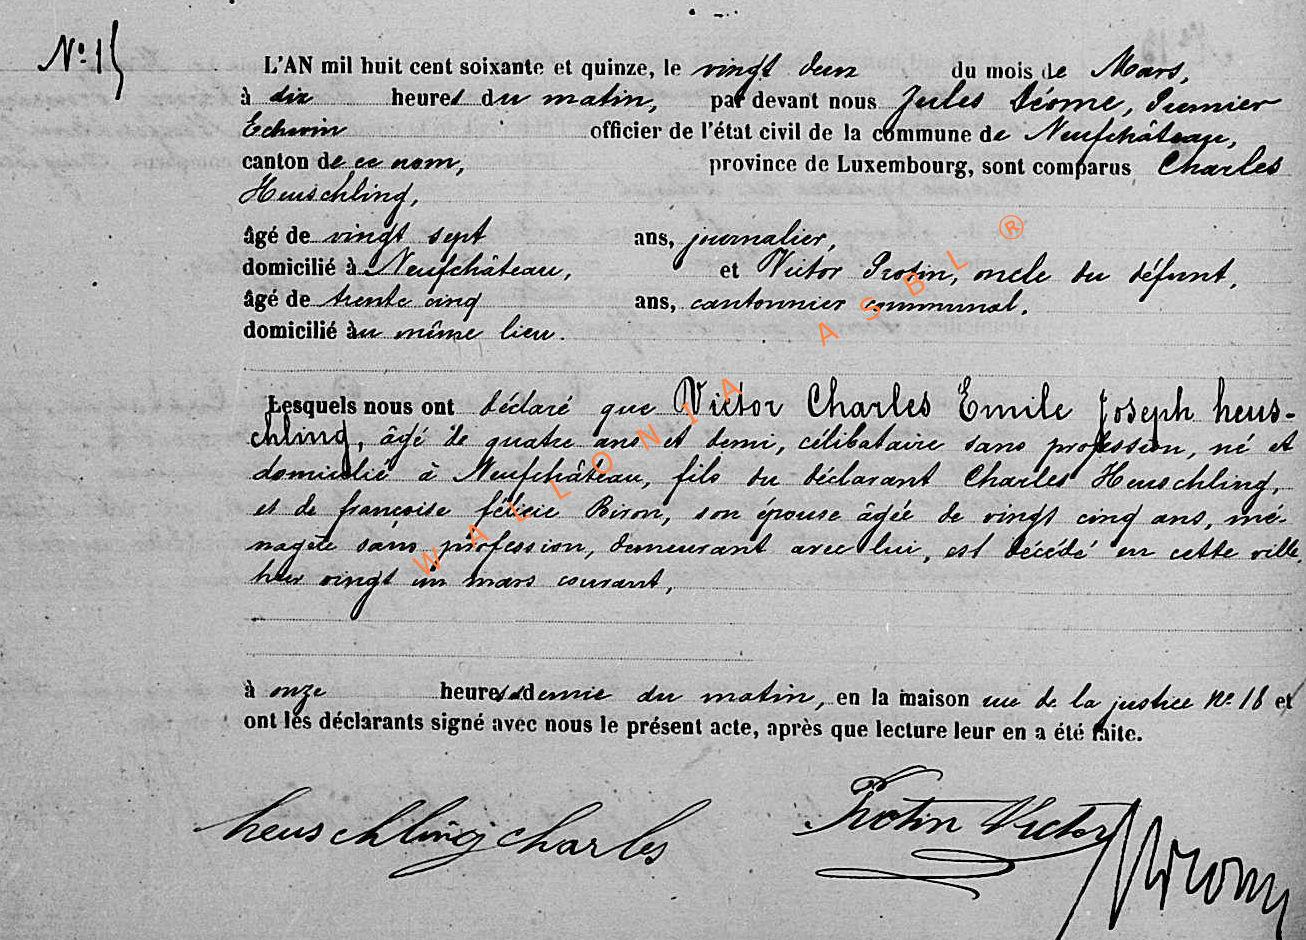 N° 15
L'AN mil huit cent soixante et quinze, le vingt deux du mois de Mars,
à dix heures du matin, par devant nous Jules Déome, Premier
Echevin officier de l'état civil de la commune de Neufchâteau,
canton de ce nom, province de Luxembourg, sont comparus Charles
Heuschling,
âgé de vingt sept ans, journalier,
domicilié à Neufchâteau, et Victor Protin, oncle du défunt,
âgé de trente cinq ans, cantonnier communal,
domicilié au même lieu.
Lesquels nous ont déclaré que Victor Charles Emile Joseph heus-
chling, âgé de quatre ans et demi, célibataire sans profession, né et
domicilié à Neufchâteau, fils du déclarant Charles Heuschling,
et de françoise félicie Biron, son épouse âgée de vingt cinq ans, mé-
nagère sans profession, demeurant avec lui, est décédé en cette ville,
hier vingt un mars courant,
à onze heures et demie du matin, en la maison rue de la justice N° 16 et
ont les déclarants signé avec nous le présent acte, après que lecture leur en a été faite.
heuschling charles Protin Victor
WALLONIA ASBL ®